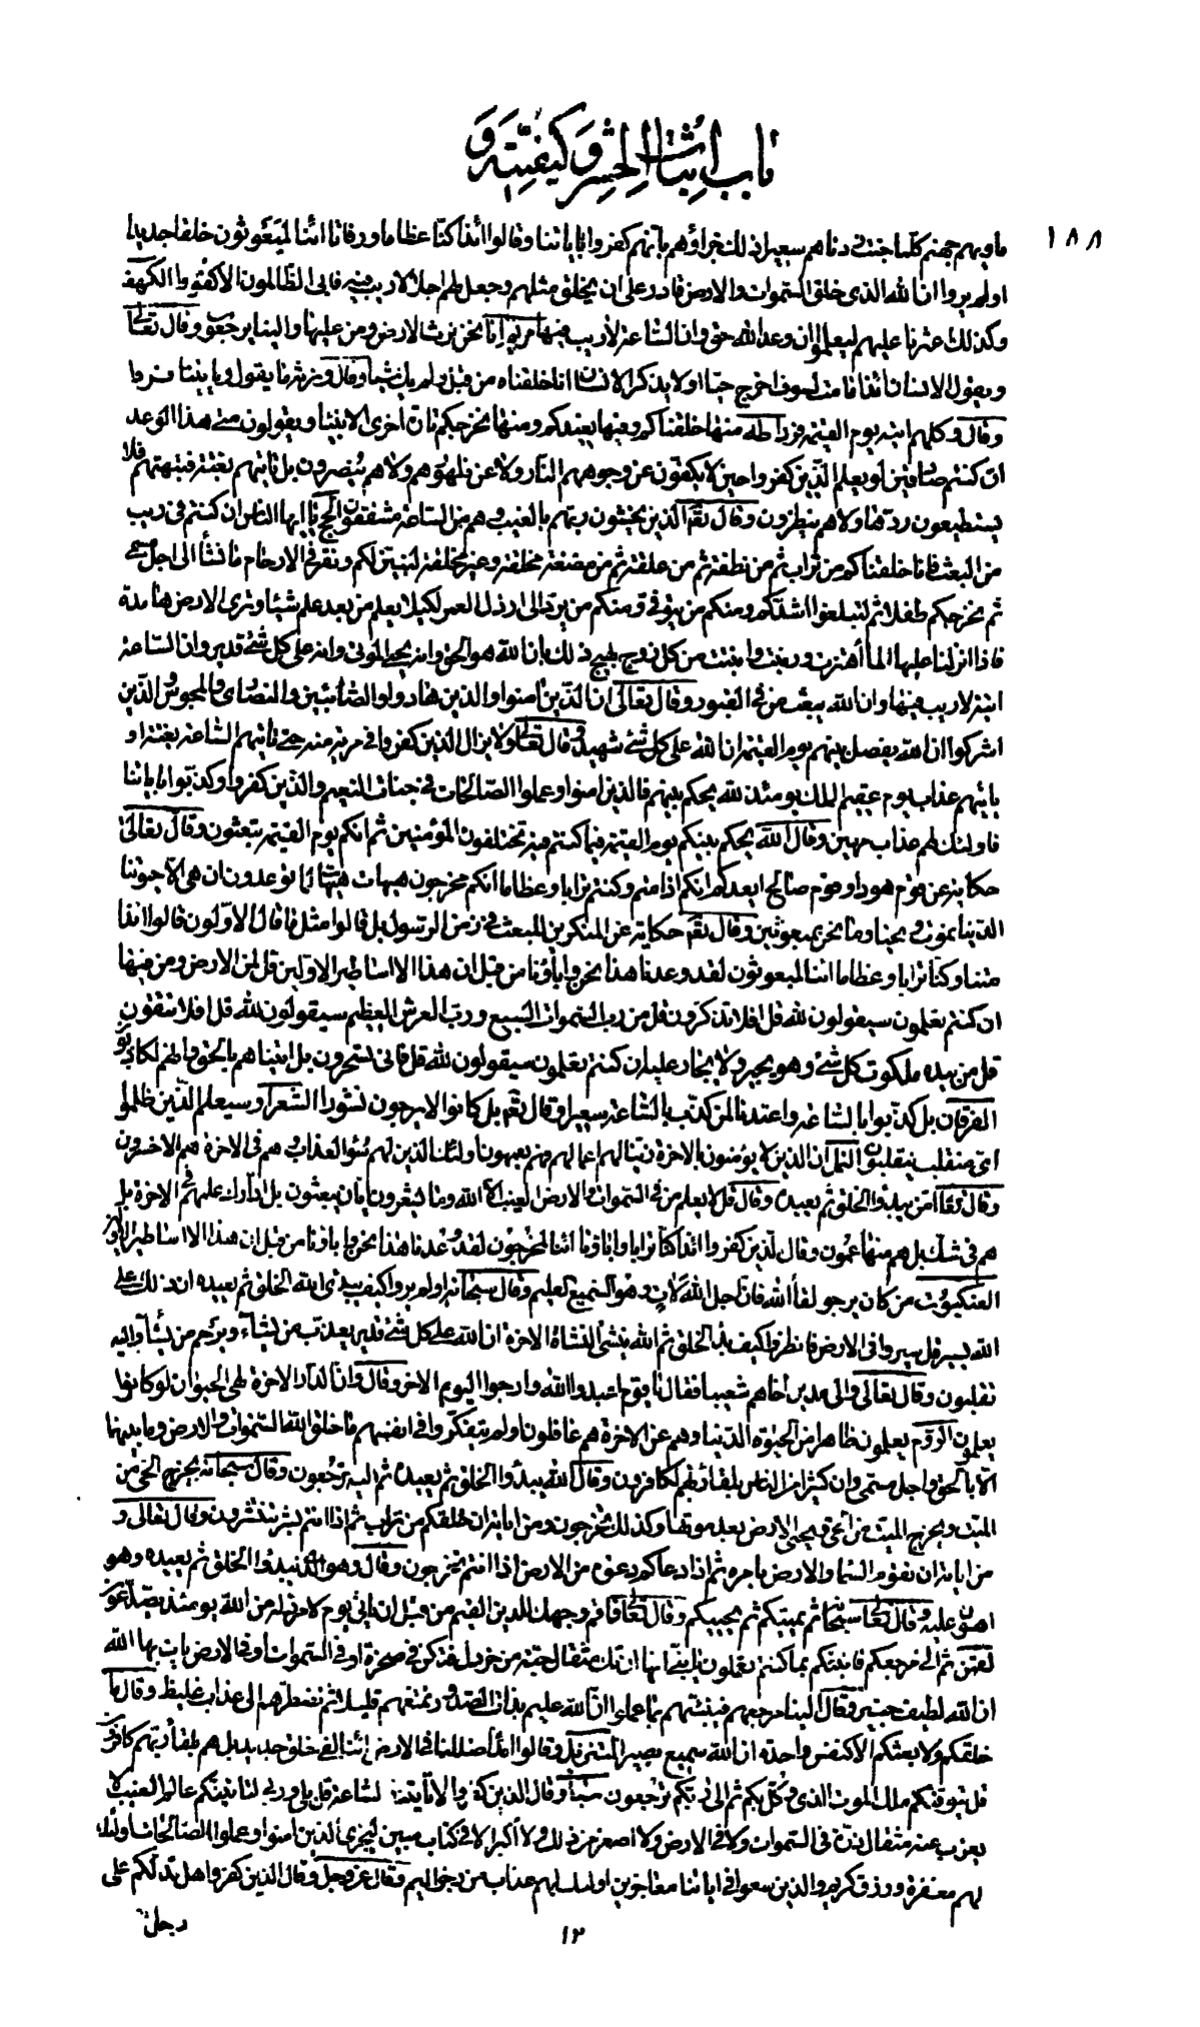 باب اثبات الحشر و كيفيته و
١٨٨
ماويهم جهنم كلما خبت زدناهم سعيرا ذلك جزاؤهم بانهم كفروا باياتنا وقالوا ائذا كنا عظاما ورفاتا ائنا لمبعوثون خلقا جديدا
اولم يروا ان الله الذى خلق السموات والارض قادر على ان يخلق مثلهم وجعل لهم اجلا لا ريب فيه فابى الظالمون الا كفورا الكهف
وكذلك عثرنا عليهم ليعلموا ان وعد الله حق وان الساعة لا ريب فيها مريم انا نحن نرث الارض ومن عليها والينا يرجعون وقال تعالى
ويقول الانسان ائذا ما مت لسوف اخرج حيا اولا يذكر الانسان انا خلقناه من قبل ولم يك شيئا وقال ونرثه ما يقول وياتينا فردا
وقال وكلهم اتيه يوم القيمة فردا طه منها خلقناكم وفيها نعيدكم ومنها نخرجكم تارة اخرى الانبياء ويقولون متى هذا الوعد
ان كنتم صادقين لو يعلم الذين كفروا حين لا يكفون عن وجوههم النار ولا عن ظهورهم ولا هم ينصرون بل تاتيهم بغتة فتبهتهم فلا
يستطيعون ردها ولا هم ينظرون وقال تعالى الذين يخشون ربهم بالغيب وهم من الساعة مشفقون الحج يا ايها الناس ان كنتم فى ريب
من البعث فانا خلقناكم من تراب ثم من نطفة ثم من علقة ثم من مضغة مخلقة وغير مخلقة لنبين لكم ونقر فى الارحام ما نشاء الى اجل مسمى
ثم نخرجكم طفلا ثم لتبلغوا اشدكم ومنكم من يتوفى ومنكم من يرد الى ارذل العمر لكيلا يعلم من بعد علم شيئا وترى الارض هامدة
فاذا انزلنا عليها الماء اهتزت وربت وانبتت من كل زوج بهيج ذلك بان الله هو الحق وانه يحيى الموتى وانه على كل شئ قدير وان الساعة
اتية لا ريب فيها وان الله يبعث من فى القبور وقال تعالى ان الذين امنوا والذين هادوا والصائبين والنصارى والمجوس والذين
اشركوا ان الله يفصل بينهم يوم القيمة ان الله على كل شئ شهيد وقال تعالى ولا يزال الذين كفروا فى مرية منه حتى تاتيهم الساعة بغتة او
ياتيهم عذاب يوم عقيم الملك يومئذ لله يحكم بينهم فالذين امنوا وعملوا الصالحات فى جنات النعيم والذين كفروا وكذبوا باياتنا
فاولئك لهم عذاب مهين وقال الله يحكم بينكم يوم القيمة فيما كنتم فيه تختلفون المؤمنين ثم انكم يوم القيمة تبعثون وقال تعالى
حكاية عن قوم هود او قوم صالح ايعدكم انكم اذا متم وكنتم ترابا وعظاما انكم مخرجون هيهات هيهات لما توعدون ان هى الا حيوتنا
الدنيا نموت ونحيا وما نحن بمبعوثين وقال تعالى حكاية عن المنكرين للبعث فى زمن الرسول بل قالوا مثل ما قال الاولون قالوا ائذا
متنا وكنا ترابا وعظاما ائنا لمبعوثون لقد وعدنا هذا نحن واباؤنا من قبل ان هذا الا اساطير الاولين قل لمن الارض ومن فيها
ان كنتم تعلمون سيقولون لله قل افلا تذكرون قل من رب السموات السبع ورب العرش العظيم سيقولون لله قل افلا تتقون
قل من بيده ملكوت كل شئ وهو يجير ولا يجار عليه ان كنتم تعلمون سيقولون لله قل فانى تسحرون بل اتيناهم بالحق وانهم لكاذبون
الفرقان بل كذبوا بالساعة واعتدنا لمن كذب بالساعة سعيرا وقال تعالى بل كانوا لا يرجون نشورا الشعراء وسيعلم الذين ظلموا
اى منقلب ينقلبون النمل ان الذين لا يؤمنون بالاخرة زينا لهم اعمالهم فهم يعمهون اولئك الذين لهم سوء العذاب وهم فى الاخرة هم الاخسرون
وقال تعالى امن يبدؤا الخلق ثم يعيده وقال قل لا يعلم من فى السموات والارض الغيب الا الله وما يشعرون ايان يبعثون بل ادارك علمهم فى الاخرة بل
هم فى شك بل هم منها عمون وقال الذين كفروا ائذا كنا ترابا واباؤنا ائنا لمخرجون لقد وعدنا هذا نحن واباؤنا من قبل ان هذا الا اساطير الاولين
العنكبوت من كان يرجو لقاء الله فان اجل الله لات وهو السميع العليم وقال سبحانه اولم يروا كيف يبدئ الله الخلق ثم يعيده ان ذلك على
الله يسير قل سيروا فى الارض فانظروا كيف بدا الخلق ثم الله ينشئ النشاة الاخرة ان الله على كل شئ قدير يعذب من يشاء ويرحم من يشاء واليه
تقلبون وقال تعالى والى مدين اخاهم شعيبا فقال يا قوم اعبدوا الله وارجوا اليوم الاخر وقال وان الدار الاخرة لهى الحيوان لو كانوا
يعلمون الروم يعلمون ظاهرا من الحيوة الدنيا وهم عن الاخرة هم غافلون اولم يتفكروا فى انفسهم ما خلق الله السموات والارض وما بينهما
الا بالحق واجل مسمى وان كثيرا من الناس بلقاء ربهم لكافرون وقال الله يبدؤا الخلق ثم يعيده ثم اليه ترجعون وقال سبحانه يخرج الحى من
الميت ويخرج الميت من الحى ويحيى الارض بعد موتها وكذلك تخرجون ومن اياته ان خلقكم من تراب ثم اذا انتم بشر تنتشرون وقال تعالى و
من اياته ان تقوم السماء والارض بامره ثم اذا دعاكم دعوة من الارض اذا انتم تخرجون وقال وهو الذى يبدؤا الخلق ثم يعيده وهو
اهون عليه وقال تعالى ثم يميتكم ثم يحييكم وقال تعالى فاقم وجهك للدين القيم من قبل ان ياتى يوم لا مرد له من الله يومئذ يصدعون
لقمن ثم الى مرجعكم فانبئكم بما كنتم تعملون يا بنى انها ان تك مثقال حبة من خردل فتكن فى صخرة او فى السموات او فى الارض يات بها الله
ان الله لطيف خبير وقال الينا مرجعهم فننبئهم بما عملوا ان الله عليم بذات الصدور نمتعهم قليلا ثم نضطرهم الى عذاب غليظ وقال ما
خلقكم ولا بعثكم الا كنفس واحدة ان الله سميع بصير التنزيل وقالوا ائذا ضللنا فى الارض ائنا لفى خلق جديد بل هم بلقاء ربهم كافرون
قل يتوفيكم ملك الموت الذى وكل بكم ثم الى ربكم ترجعون سبا وقال الذين كفروا لا تاتينا الساعة قل بلى وربى لتاتينكم عالم الغيب لا
يعزب عنه مثقال ذرة فى السموات ولا فى الارض ولا اصغر من ذلك ولا اكبر الا فى كتاب مبين ليجزى الذين امنوا وعملوا الصالحات اولئك
لهم مغفرة ورزق كريم والذين سعوا فى اياتنا معاجزين اولئك لهم عذاب من رجز اليم وقال عز وجل وقال الذين كفروا هل ندلكم على
رجل
١٢